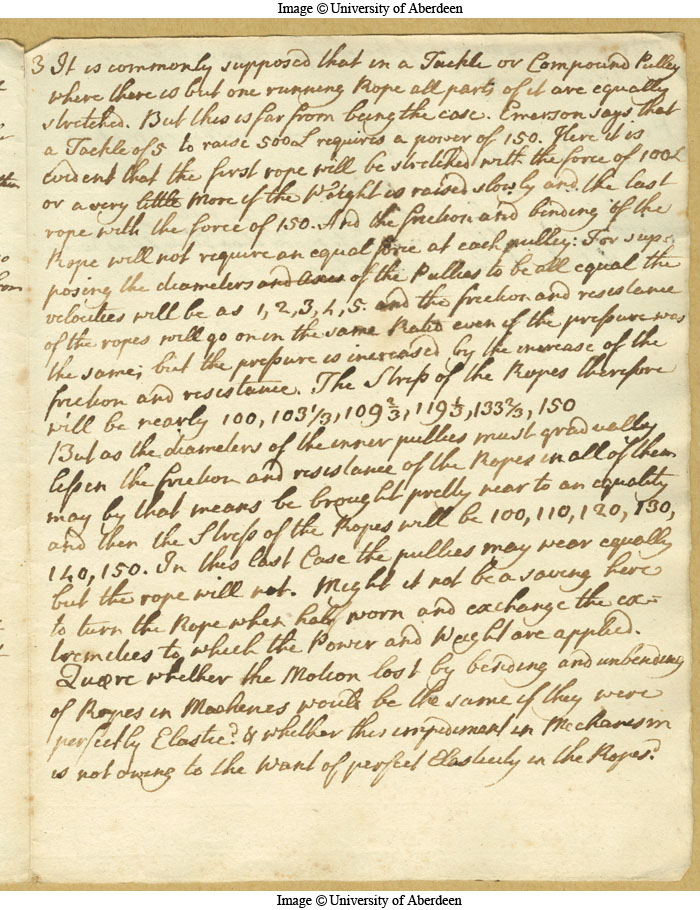 Image © University of Aberdeen
3 It is commonly supposed that in a Tackle or Compound Pulley
where there is but one running Rope all parts of it are equally
stretched. But this is far from being the case. Emerson says that
a Tackle of 5 to raise 500L requires a power of 150. Here it is
evident that the first rope will be stretched with the force of 100L
or a very little more if the Weight is raised slowly and the last
rope with the force of 150. And the friction and binding of the
Rope will not require an equal force at each pulley: For sup-
posing the diameters and axes of the Pullies to be all equal the
velocities will be as 1, 2, 3, 4, 5. and the friction and resistance
of the ropes will go on in the same Ratio even if the pressure was
the same; but the pressure is increased by the increase of the
friction and resistance. The Stress of the Ropes therefore
will be nearly 100, 103 1/3, 109 2/3, 119 1/3, 133 2/3, 150
But as the diameters of the inner pullies must gradually
lessen the friction and resistance of the Ropes in all of them
may by that means be brought pretty near to an equality
and then the Stress of the Ropes will be 100, 110, 120, 130,
140, 150. In this last Case the pullies may wear equally
but the rope will not. Might it not be a saving here
to turn the Rope when half worn and exchange the ex-
tremities to which the Power and Weight are applied.
Quære whether the Motion lost by bending and unbending
of Ropes in Machines would be the same if they were
perfectly Elastic? & whether this impediment in Mechanism
is not owing to the want of perfect Elasticity in the Ropes?
Image © University of Aberdeen